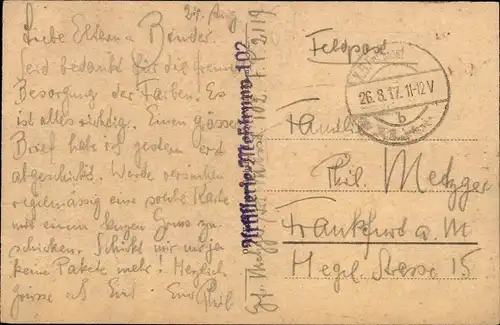 24. Aug.
Liebe Eltern u. Brüder.
Seid bedankt für die
Besorgung der Farben. Es
ist alles richtig. Einen grossen
Brief habe ich gestern erst
abgeschickt. Werde versuchen
regelmässig eine solche Karte
mit einem kurzen Gruss zu
schicken. Schickt mir nur ja
keine Pakete mehr! Herzlich
grüsst Euch Euer Phil
Artillerie-Messtrupp 102
102 F.P. 2119
Feldpost
26.8.17. 11-12V
b
Familie
Phil. Metzger
Frankfurt a. M
Hegel Strasse 15